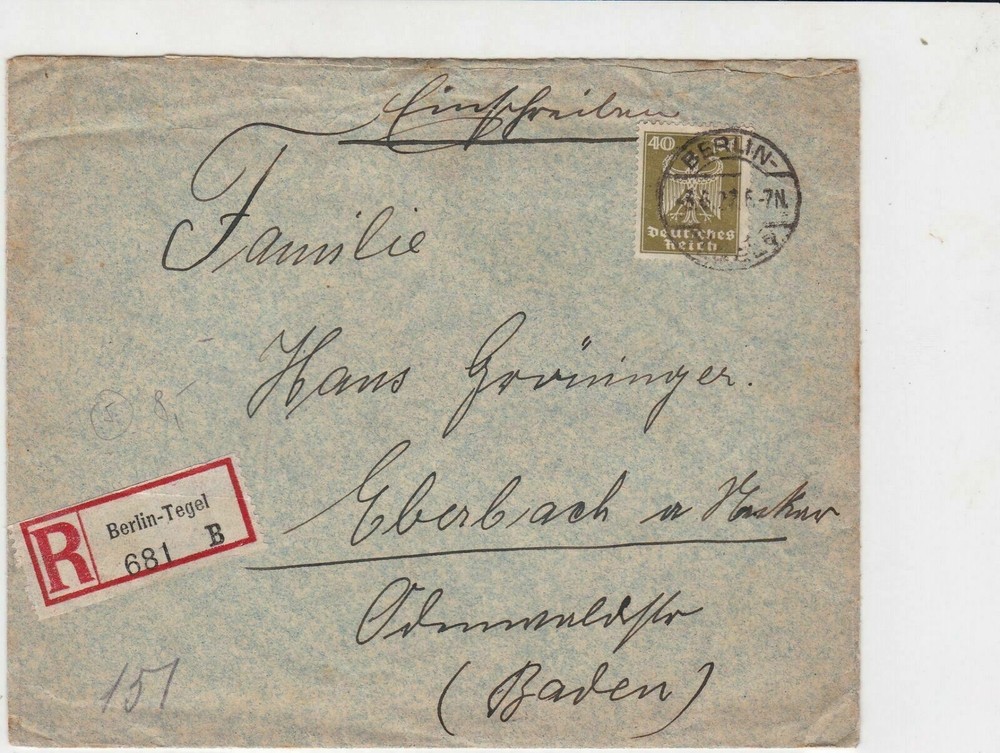 Einschreiben
40
Deutsches
Reich
BERLIN-
.27.6-7N.
Familie
Hans Gröninger.
5. 8,-
Eberbach a Neckar
R Berlin-Tegel
681 B
Odenwaldstr
(Baden)
151